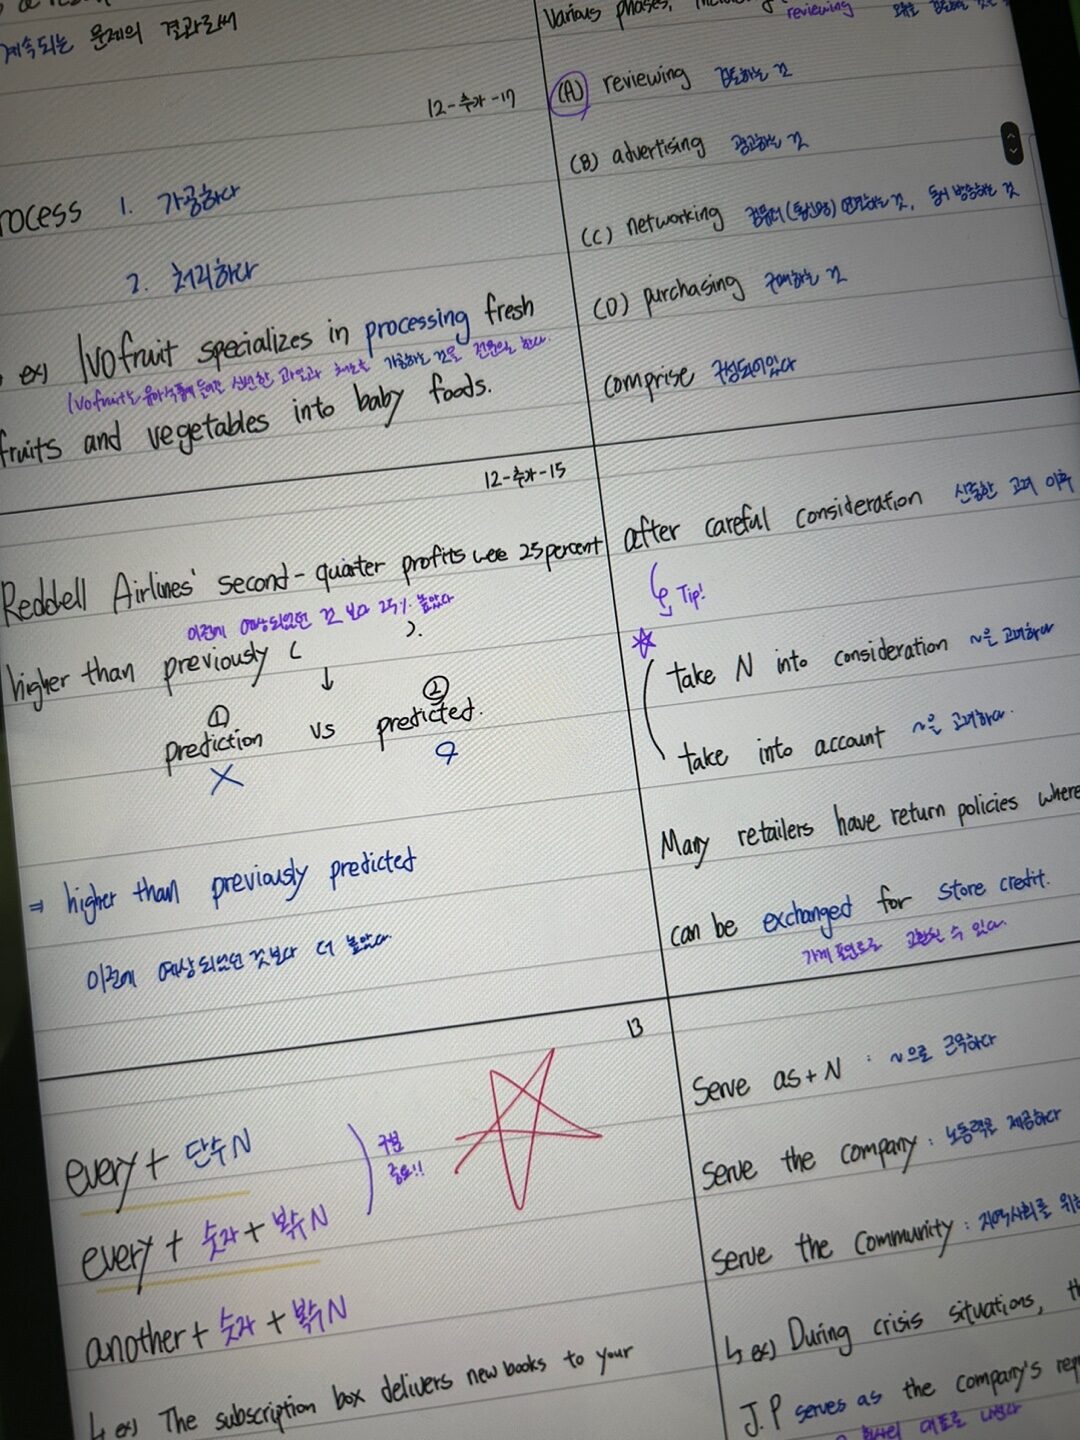 계속되는 문제의 결과로써
12-추가-17
rocess 1. 가공하다
2. 처리하다
ex) Ivofruit specializes in processing fresh
Ivofruit는 유아식품에 들어갈 신선한 과일과 채소를 가공하는 것을 전문으로 한다.
fruits and vegetables into baby foods.
12-추가-15
Reddell Airlines' second-quarter profits were 25 percent
이전에 예상되었던 것 보다 25% 높았다
higher than previously ( ).
↓
① ②
prediction vs predicted.
X
⇒ higher than previously predicted
이전에 예상되었던 것보다 더 높았다.
13
every + 단수N
구분
중요!!
every + 숫자 + 복수N
another + 숫자 + 복수N
↳ ex) The subscription box delivers new books to your
various phases,
reviewing
(A) reviewing 검토하는 것
(B) advertising 광고하는 것
(C) networking 컴퓨터(통신망) 연결하는 것, 동시 방송하는 것
(D) purchasing 구매하는 것
comprise 구성되어있다
after careful consideration 신중한 고려 이후
Tip!
take N into consideration ~을 고려하다
take into account ~을 고려하다.
Many retailers have return policies where
can be exchanged for store credit.
가게 포인트로 교환될 수 있다.
Serve as + N : ~으로 근무하다
Serve the company : 노동력을 제공하다
Serve the community : 지역사회를 위해
↳ ex) During crisis situations, th
J.P serves as the company's rep
회사의 대표로